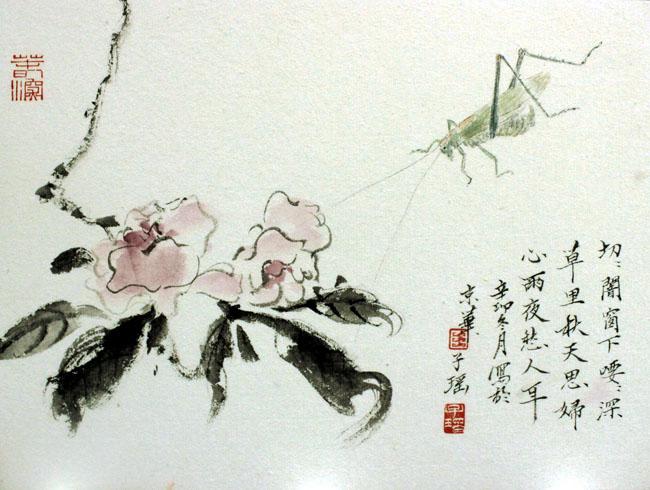 切々闇窗下喓々深
草里秋天思婦
心雨夜愁人耳
辛卯冬月寫於
京華
子瑶